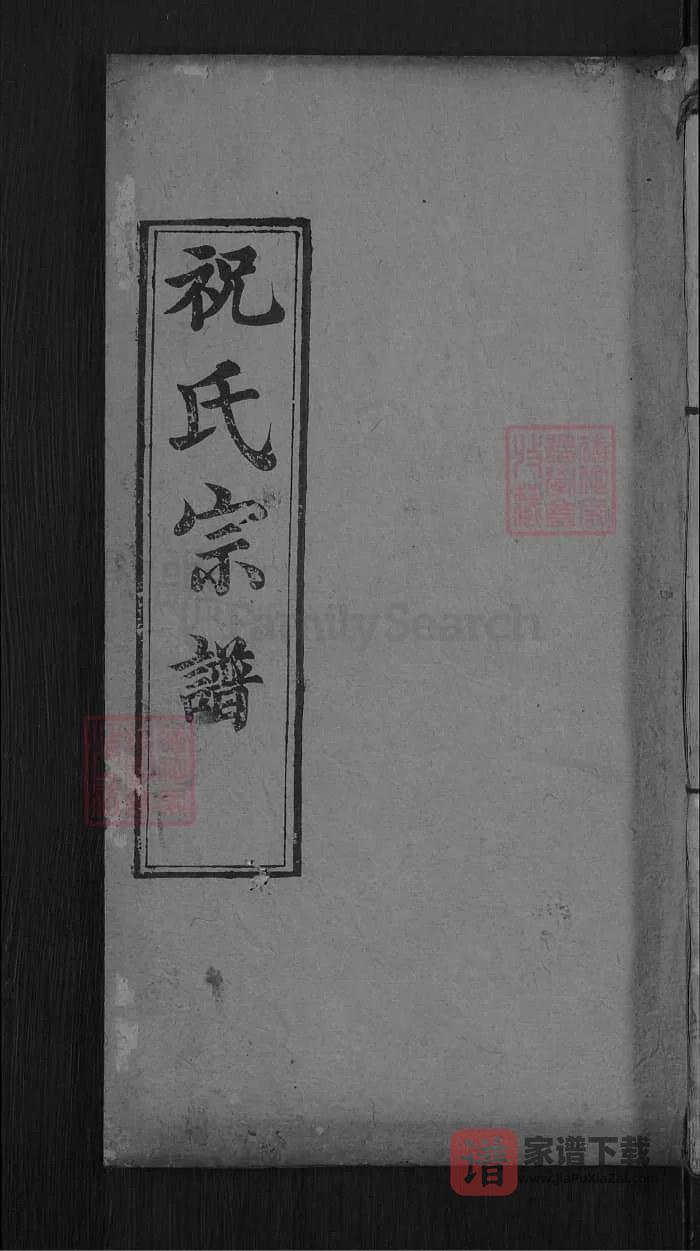 祝氏宗譜
FamilySearch
谱 家谱下载
www.JiaPuXiaZai.com